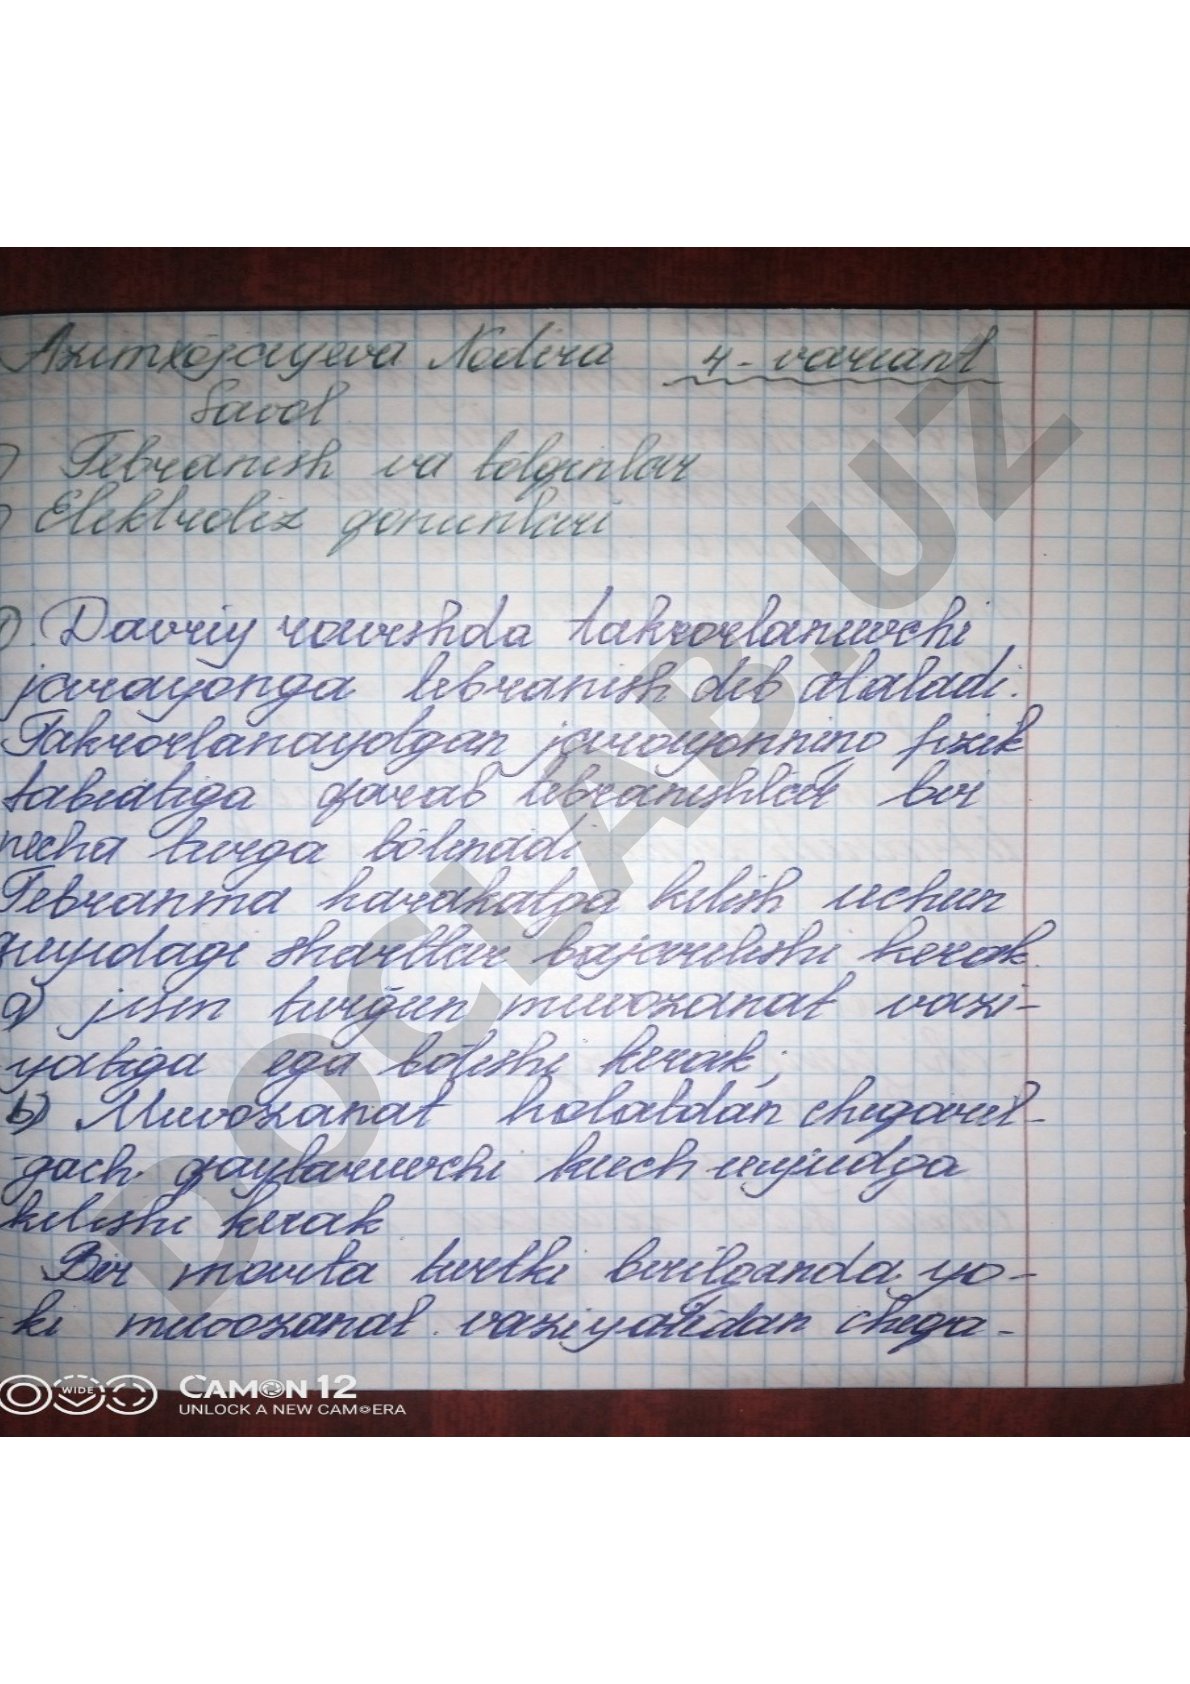 Azimxõjayeva Nodira 4-variant
Savol
) Tebranish va tõlqinlar
) Elektroliz qonunlari
1) Davriy ravishda takrorlanuvchi
jarayonga tebranish deb ataladi.
Takrorlanaydgan jarayonning fizik
tabiatiga qarab tebranishlar bir
necha turga bõlinadi
Tebranma harakatga kelish uchun
quyidagi shartlar bajarilishi kerak.
a) jism turğun muvozanat vazi-
yatiga ega bõlishi kerak;
b) Muvozanat holatdan chiqaril-
gach qaytaruvchi kuch vujudga
kelishi kerak
Bir marta turtki berilganda yo-
ki muvozanat vaziyatidan chiqa-
WIDE
CAMON 12
UNLOCK A NEW CAMERA
DOCLAB.UZ